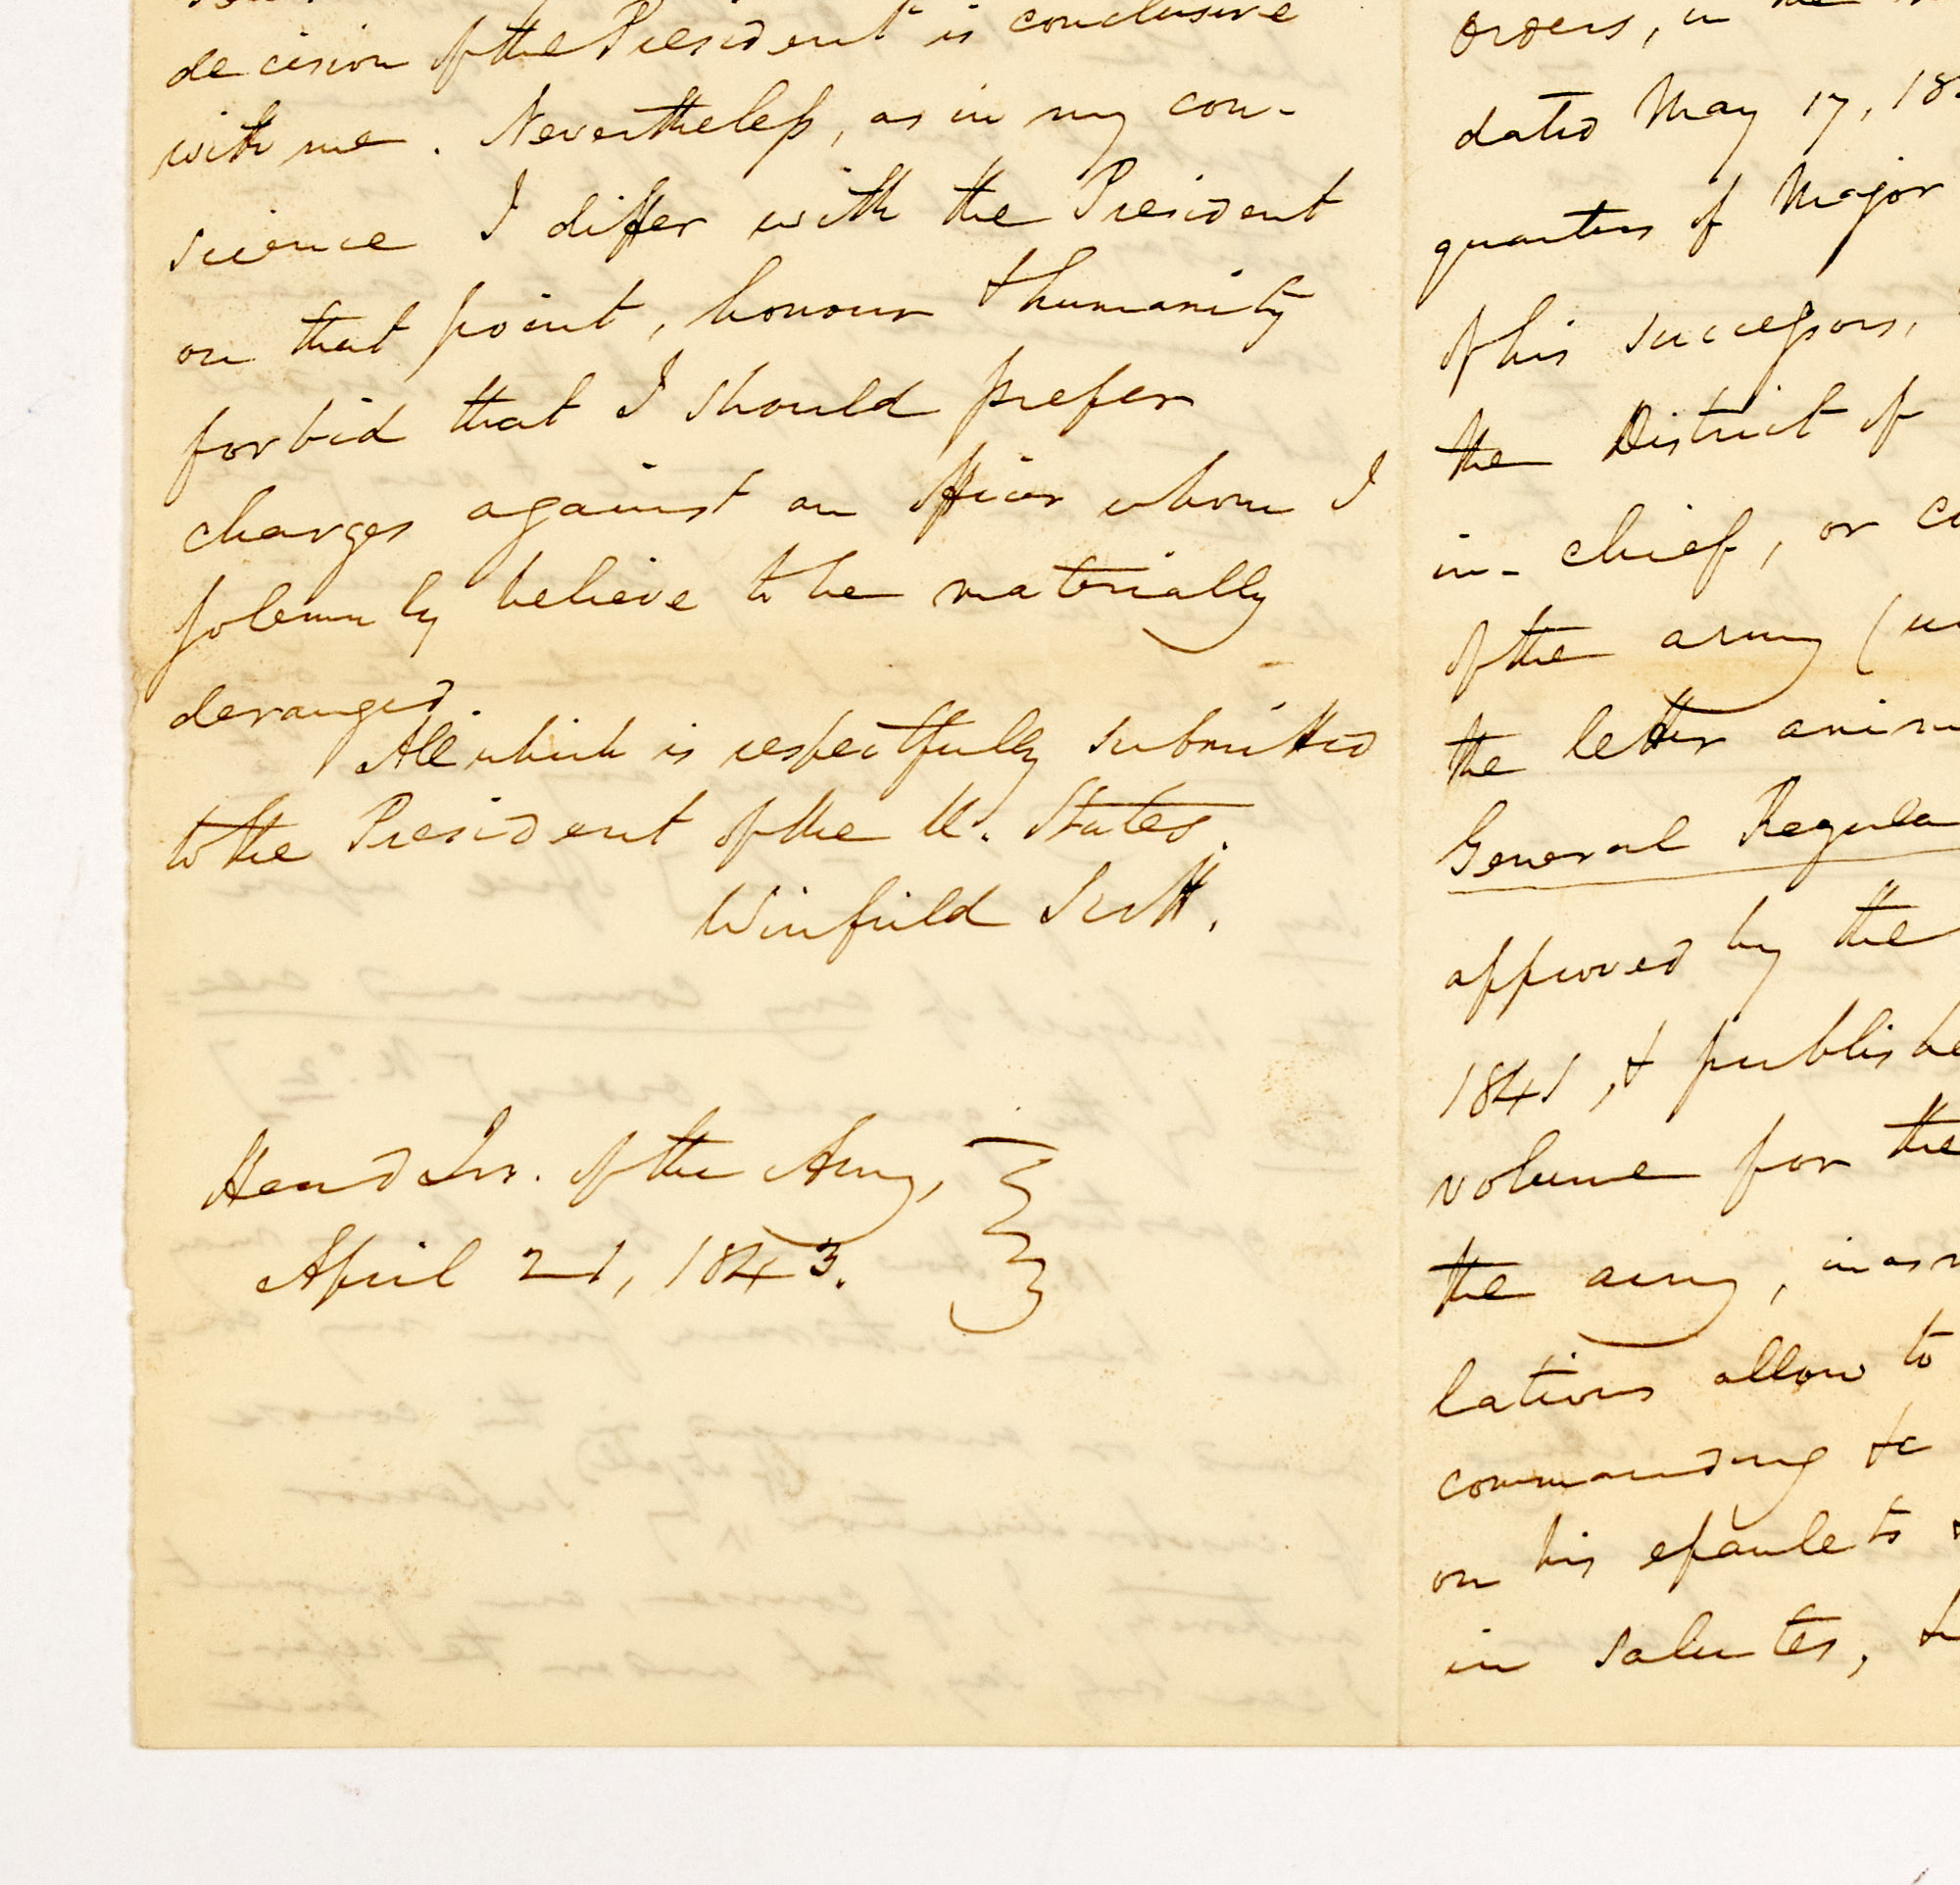 decision of the President is conclusive
with me. Nevertheless, as in my con-
science I differ with the President
on that point, honour & humanity
forbid that I should prefer
charges against an officer whom I
solemnly believe to be materially
deranged.
All which is respectfully submitted
to the President of the U. States.
Winfield Scott.
Head Qrs. of the Army,
April 21, 1843.
orders, in the
dated May 17, 18
quarters of Major
of his successors,
the District of
in-chief, or
of the army (
the letter
General Regula
approved by the
1841, & publishe
volume for the
the army, inasm
lations allow to
commanding &c
on his epaulets
in salutes,